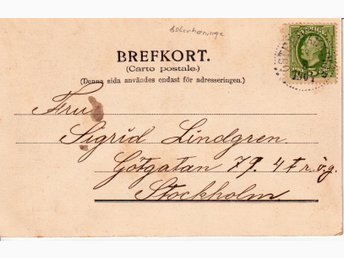 BREFKORT.
(Carto postale.)
(Denna sida användes endast för adresseringen.)
Fru
Sigrid Lindgren.
Götgatan 79. 4 tr. ö. g.
Stockholm